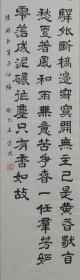 驛外斷橋邊寂寞開無主已是黃昏獨自
愁更著風和雨無意苦爭春一任羣芳妒
零落成泥碾作塵只有香如故
陸游卜算子詠梅